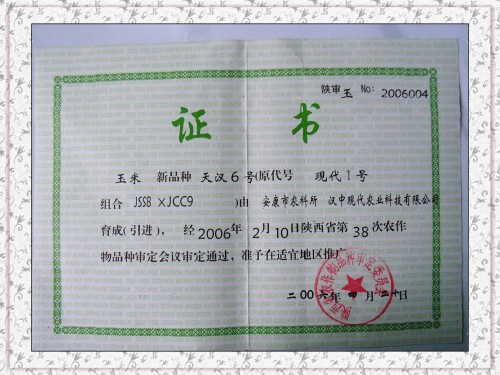 陕审玉 No: 2006004
证 书
玉米 新品种 天汉6号(原代号 现代1号
组合 JSS8 ×JCC9 )由 安康市农科所 汉中现代农业科技有限公司
育成(引进), 经2006年 2月10日陕西省第38次农作
物品种审定会议审定通过, 准予在适宜地区推广
陕西省农作物品种审定委员会
二00六年 四月二十日